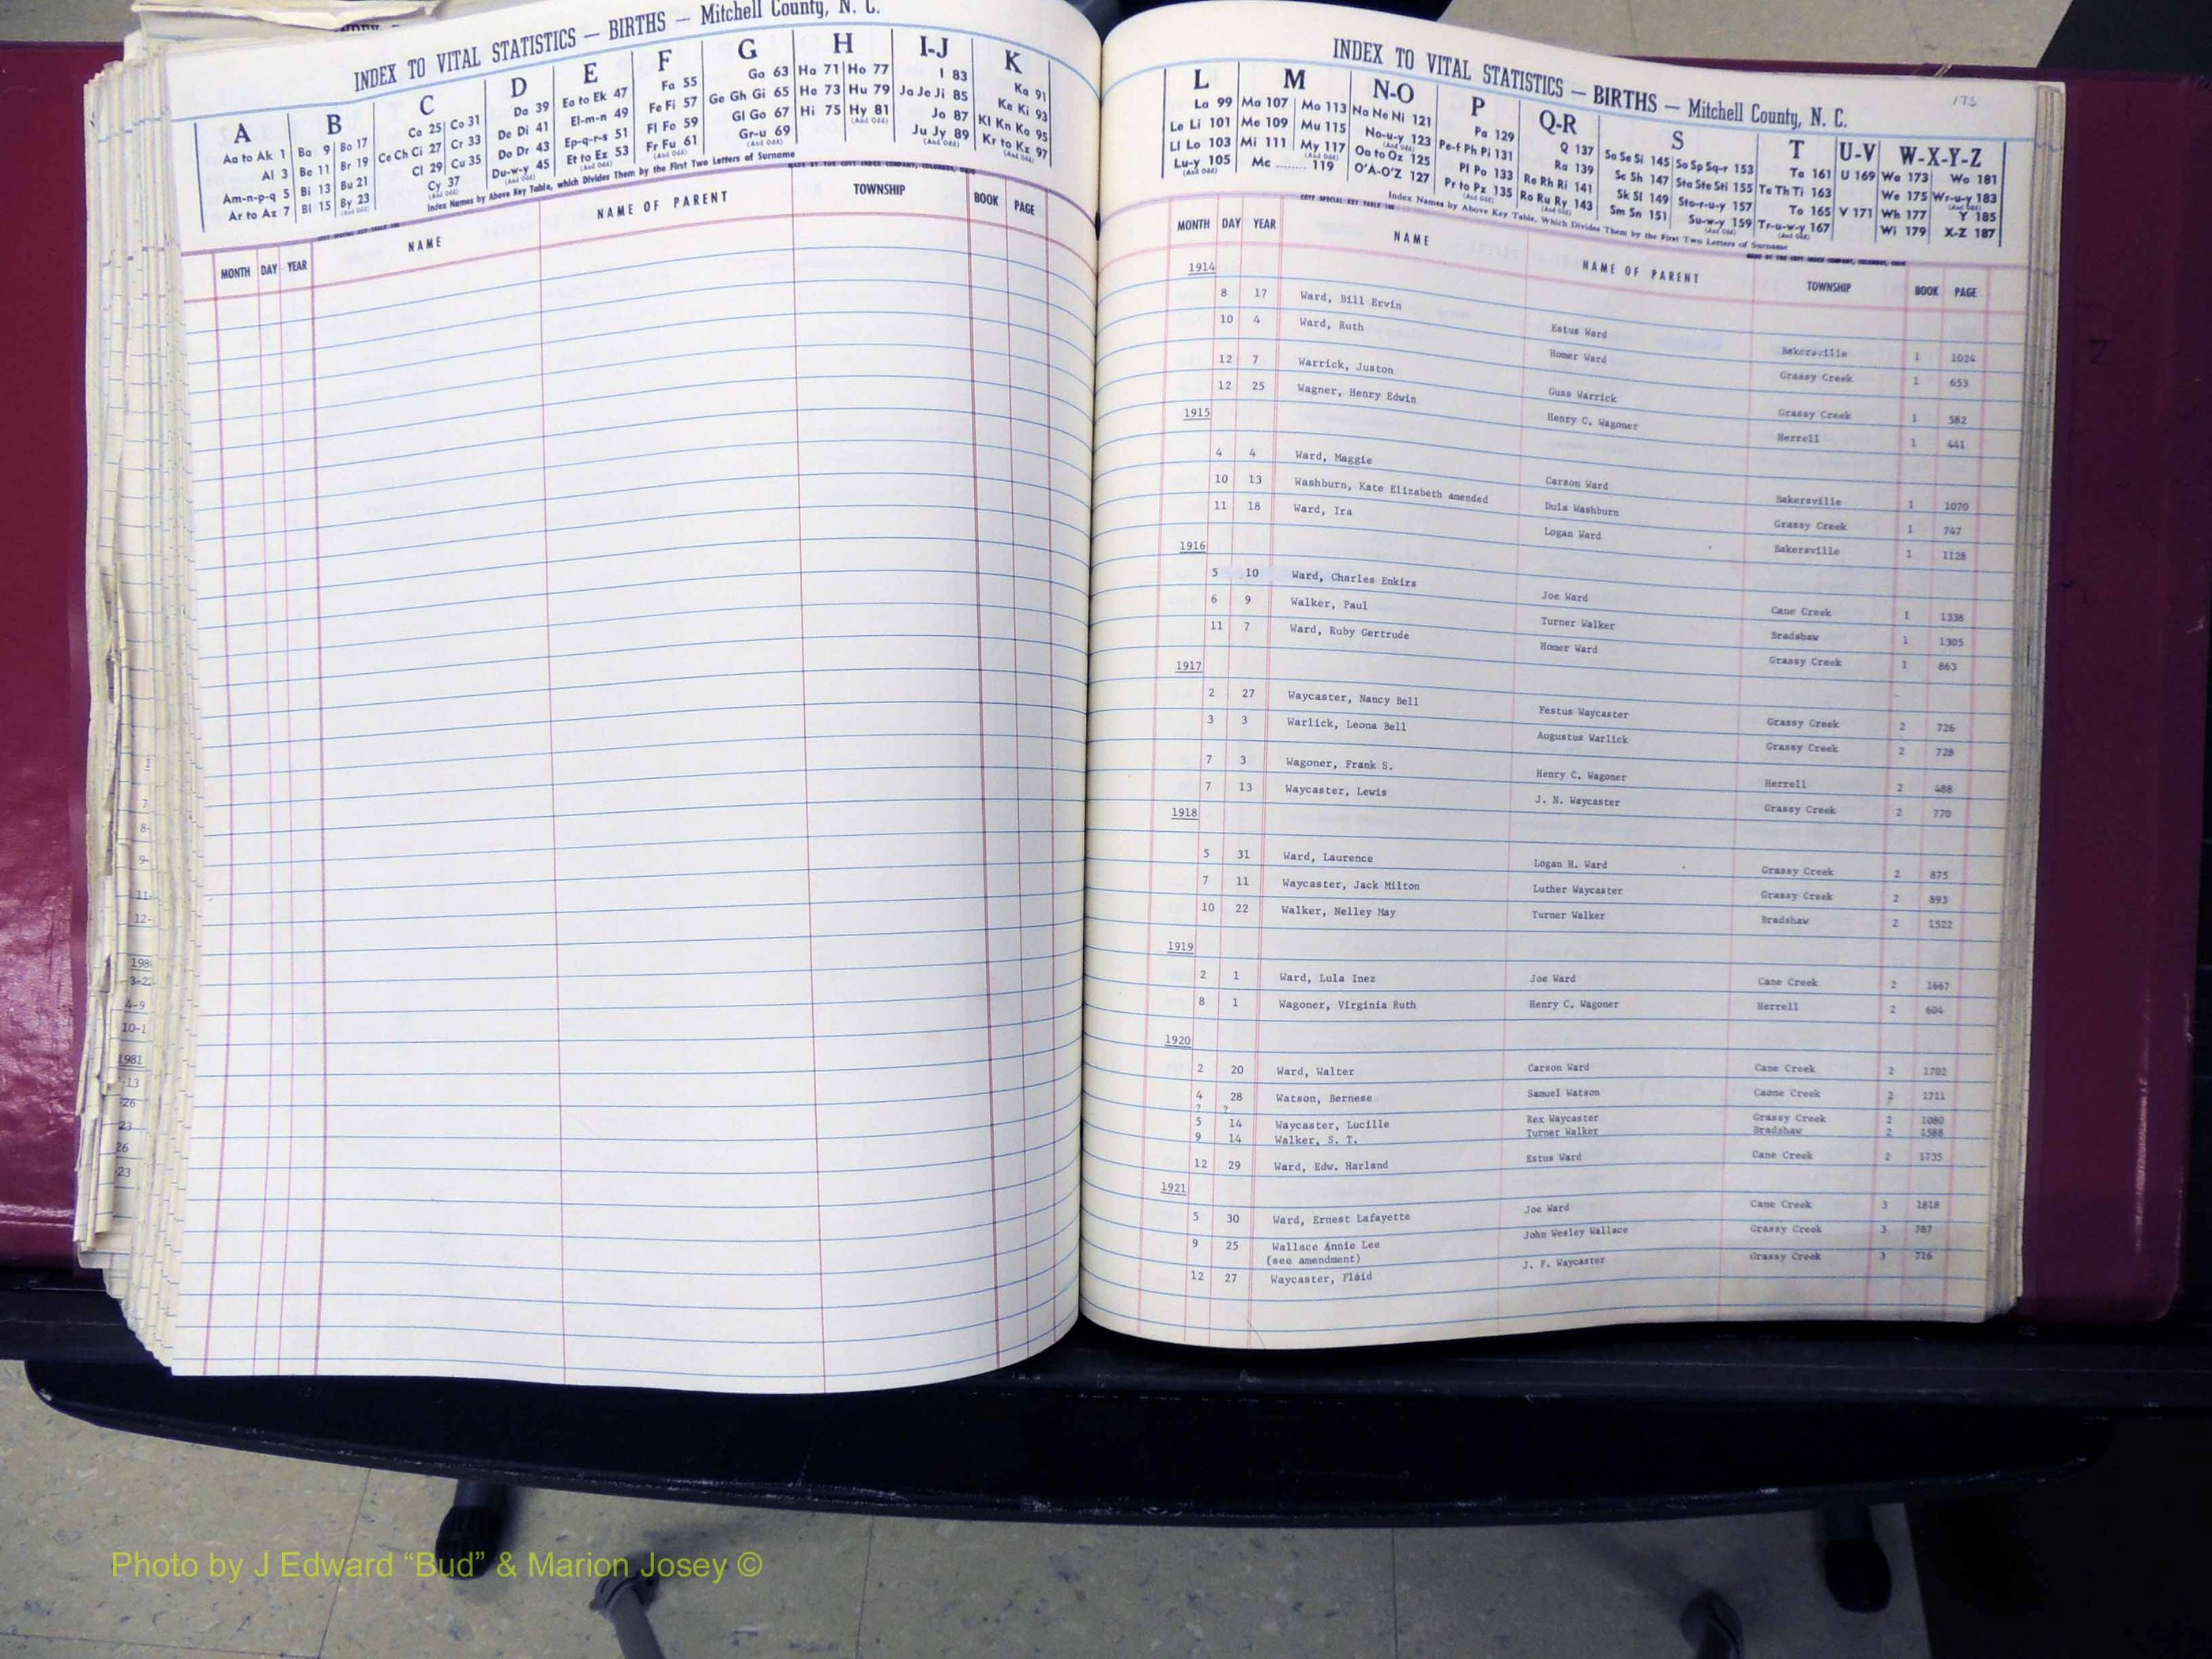 INDEX TO VITAL STATISTICS — BIRTHS — Mitchell County, N. C.
A B C D E F G H I-J K
Aa to Ak 1 Ba 9 Bo 17 Ca 25 Co 31 Da 39 Ea to Ek 47 Fa 55 Ga 63 Ha 71 Ho 77 I 83 Ka 91
Al 3 Be 11 Br 19 Ce Ch Ci 27 Cr 33 De Di 41 El-m-n 49 Fe Fi 57 Ge Gh Gi 65 He 73 Hu 79 Ja Je Ji 85 Ke Ki 93
Am-n-p-q 5 Bi 13 Bu 21 Cl 29 Cu 35 Do Dr 43 Ep-q-r-s 51 Fl Fo 59 Gl Go 67 Hi 75 Hy 81 (And Odd) Jo 87 Kl Kn Ko 95
Ar to Az 7 Bl 15 By 23 (And Odd) Cy 37 (And Odd) Du-w-y 45 (And Odd) Et to Ez 53 Fr Fu 61 (And Odd) Gr-u 69 (And Odd) Ju Jy 89 (And Odd) Kr to Kz 97 (And Odd)
Index Names by Above Key Table, which Divides Them by the First Two Letters of Surname
MADE BY THE COTT INDEX COMPANY, COLUMBUS, OHIO
MONTH DAY YEAR NAME NAME OF PARENT TOWNSHIP BOOK PAGE
198
3-22
4-9
10-1
1981
-13
-26
23
26
-23
INDEX TO VITAL STATISTICS — BIRTHS — Mitchell County, N. C.
173
L M N-O P Q-R S T U-V W-X-Y-Z
La 99 Ma 107 Mo 113 Na Ne Ni 121 Pa 129 Q 137 Sa Se Si 145 So Sp Sq-r 153 Ta 161 U 169 Wa 173 Wo 181
Le Li 101 Me 109 Mu 115 No-u-y 123 (And Odd) Pe-f Ph Pi 131 Ra 139 Sc Sh 147 Sta Ste Sti 155 Te Th Ti 163 We 175 Wr-u-y 183 (And Odd)
Ll Lo 103 Mi 111 My 117 (And Odd) Oa to Oz 125 Pl Po 133 Re Rh Ri 141 Sk Sl 149 Sto-r-u-y 157 To 165 V 171 Wh 177 Y 185
Lu-y 105 (And Odd) Mc ........ 119 O'A-O'Z 127 Pr to Pz 135 (And Odd) Ro Ru Ry 143 (And Odd) Sm Sn 151 Su-w-y 159 (And Odd) Tr-u-w-y 167 (And Odd) Wi 179 X-Z 187
COTT SPECIAL KEY TABLE 100 Index Names by Above Key Table, Which Divides Them by the First Two Letters of Surname
MADE BY THE COTT INDEX COMPANY, COLUMBUS, OHIO
MONTH DAY YEAR NAME NAME OF PARENT TOWNSHIP BOOK PAGE
1914
8 17 Ward, Bill Ervin Estus Ward Bakersville 1 1024
10 4 Ward, Ruth Homer Ward Grassy Creek 1 653
12 7 Warrick, Juston Guss Warrick Grassy Creek 1 582
12 25 Wagner, Henry Edwin Henry C. Wagoner Herrell 1 441
1915
4 4 Ward, Maggie Carson Ward Bakersville 1 1070
10 13 Washburn, Kate Elizabeth amended Dula Washburn Grassy Creek 1 747
11 18 Ward, Ira Logan Ward Bakersville 1 1128
1916
5 10 Ward, Charles Enkirs Joe Ward Cane Creek 1 1338
6 9 Walker, Paul Turner Walker Bradshaw 1 1305
11 7 Ward, Ruby Gertrude Homer Ward Grassy Creek 1 863
1917
2 27 Waycaster, Nancy Bell Festus Waycaster Grassy Creek 2 726
3 3 Warlick, Leona Bell Augustus Warlick Grassy Creek 2 728
7 3 Wagoner, Frank S. Henry C. Wagoner Herrell 2 488
7 13 Waycaster, Lewis J. N. Waycaster Grassy Creek 2 770
1918
5 31 Ward, Laurence Logan H. Ward Grassy Creek 2 875
7 11 Waycaster, Jack Milton Luther Waycaster Grassy Creek 2 893
10 22 Walker, Nelley May Turner Walker Bradshaw 2 1522
1919
2 1 Ward, Lula Inez Joe Ward Cane Creek 2 1667
8 1 Wagoner, Virginia Ruth Henry C. Wagoner Herrell 2 604
1920
2 20 Ward, Walter Carson Ward Cane Creek 2 1702
4 28 Watson, Bernese Samuel Watson Caone Creek 2 1711
? ?
5 14 Waycaster, Lucille Rex Waycaster Grassy Creek 2 1080
9 14 Walker, S. T. Turner Walker Bradshaw 2 1588
12 29 Ward, Edw. Harland Estus Ward Cane Creek 2 1735
1921
5 30 Ward, Ernest Lafayette Joe Ward Cane Creek 3 1818
9 25 Wallace Annie Lee John Wesley Wallace Grassy Creek 3 787
(see amendment)
12 27 Waycaster, Flaid J. F. Waycaster Grassy Creek 3 716
Photo by J Edward “Bud” & Marion Josey ©